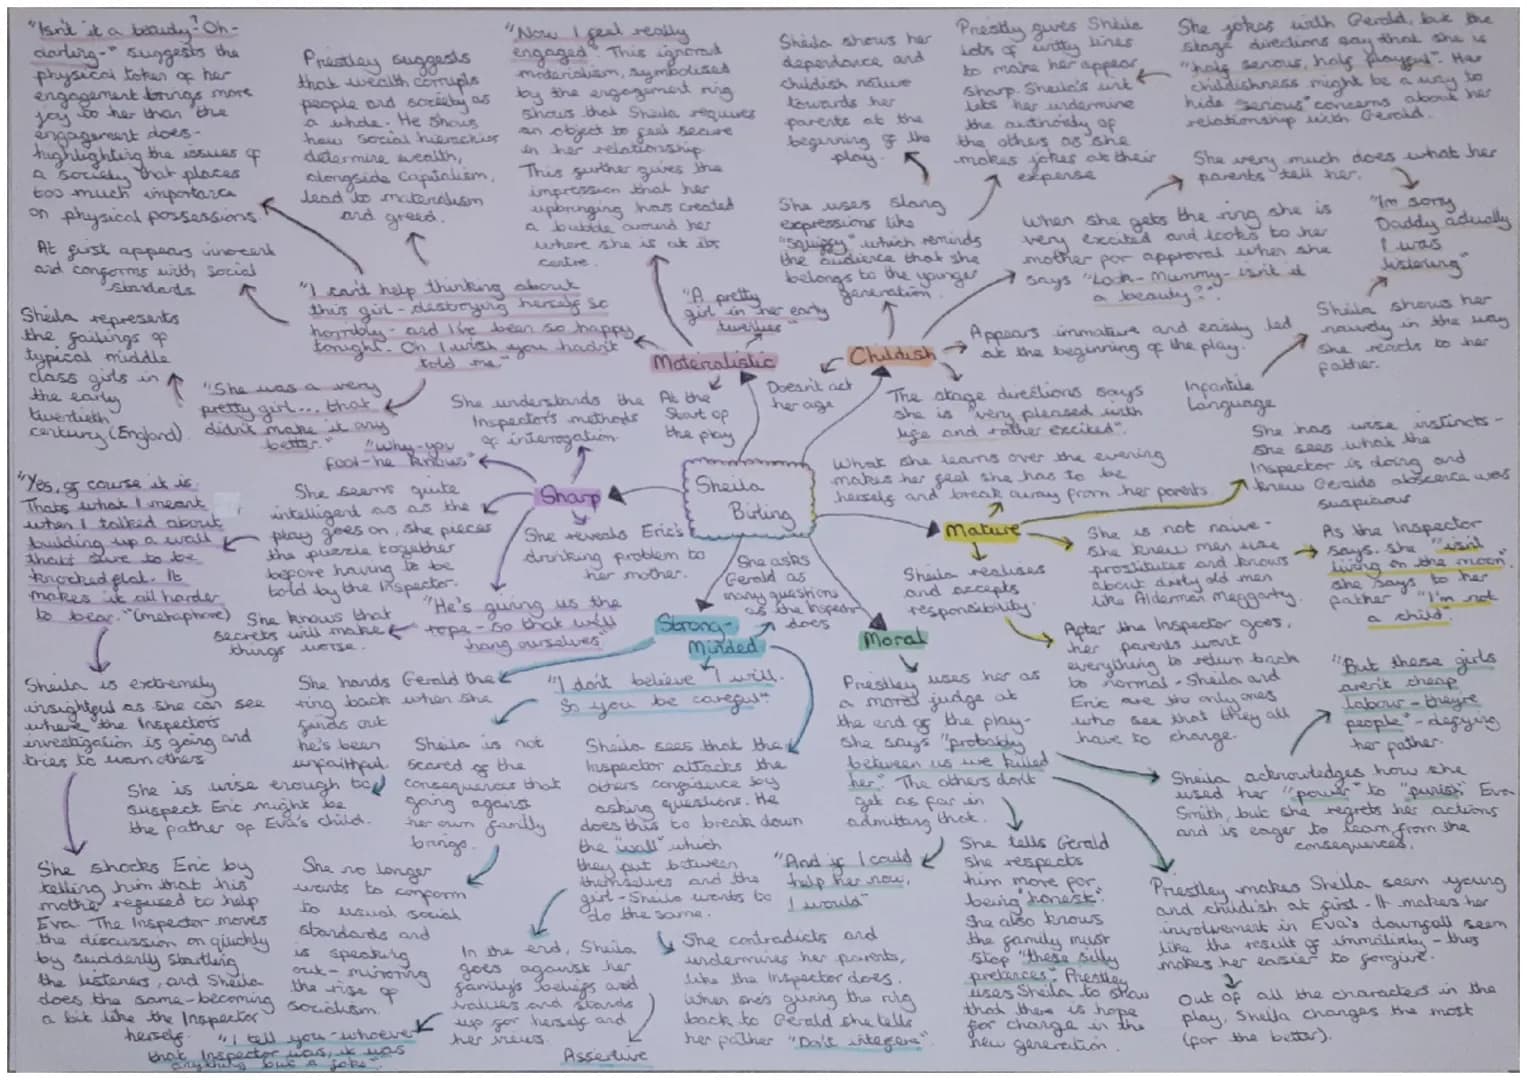 "Isn't it a beauty? Oh-
darling-" suggests the
physical token of her
engagement brings more
joy to her than the
engagement does-
highlighting the issues of
a society that places
too much importance
on physical possessions.
Priestley suggests
that wealth corrupts
people and society as
a whole. He shows
how social hierarchies
determine wealth,
alongside capitalism,
lead to materialism
and greed.
"Now I feel really
engaged" This ignorant
materialism, symbolised
by the engagement ring
shows that Sheila requires
an object to feel secure
in her relationship.
This further gives the
impression that her
upbringing has created
a bubble around her
where she is at its
centre.
Sheila shows her
dependance and
childish nature
towards her
parents at the
beginning of the
play.
Priestley gives Sheila
lots of witty lines
to make her appear
sharp. Sheila's wit
lets her undermine
the authority of
the others as she
makes jokes at their
expense
She jokes with Gerald, but the
stage directions say that she is
"half serious, half playful". Her
childishness might be a way to
hide "serious" concerns about her
relationship with Gerald.
She very much does what her
parents tell her.
"I'm sorry
Daddy actually
I was
listening"
She uses slang
expressions like
"squiffy" which reminds
the audience that she
belongs to the younger
generation.
When she gets the ring she is
very excited and looks to her
mother for approval when she
says "Look- Mummy- isn't it
a beauty?".
Sheila shows her
naivety in the way
she reacts to her
father.
Infantile
Language
At first appears innocent
and conforms with social
standards
Sheila represents
the failings of
typical middle
class girls in
the early
twentieth
century (England).
"I can't help thinking about
this girl- destroying herself so
horribly- and I've been so happy
tonight. Oh I wish you hadn't
told me"
"A pretty
girl in her early
twenties"
Materialistic
At the
Start of
the play
Childish
Doesn't act
her age
Appears immature and easily led
at the beginning of the play.
The stage directions says
she is "very pleased with
life and rather excited".
"She was a very
pretty girl... that
didn't make it any
better."
She understands the
Inspector's methods
of interrogation
"Why- you
fool- he knows"
Sharp
She seems quite
intelligent as as the
play goes on, she pieces
the puzzle together
before having to be
told by the Inspector.
She reveals Eric's
drinking problem to
her mother.
"Yes, of course it is.
Thats what I meant
when I talked about
building up a wall
thats sure to be
knocked flat. It
makes it all harder
to bear." (metaphore)
She knows that
secrets will make
things worse.
"He's giving us the
rope- so that will
hang ourselves"
Sheila is extremely
insightful as she can see
where the Inspectors
investigation is going and
tries to warn others
She shocks Eric by
telling him that his
mother refused to help
Eva. The Inspector moves
the discussion on quickly
by suddenly startling
the listeners, and Sheila
does the same- becoming
a bit like the Inspector
herself.
Sheila
Birling
What she learns over the evening
makes her feel she has to be
herself and break away from her parents
Mature
She has wise instincts-
she sees what the
Inspector is doing and
knew Geralds abscence was
suspicious
She is not naive-
she knew men use
prostitutes and knows
about dirty old men
like Alderman Meggarty.
As the Inspector
says. she "isn't
living on the moon".
she says to her
father "I'm not
a child".
Sheila realises
and accepts
responsibility.
After the Inspector goes,
her parents want
everything to return back
to normal- Sheila and
Eric are the only ones
who see that they all
have to change.
Strong-
Minded
She asks
Gerald as
many questions
as the Inspector
does
She hands Gerald the
ring back when she
finds out
he's been
unfaithful
She is wise enough to
suspect Eric might be
the father of Eva's child.
"I don't believe I will.
So you be careful"
Sheila is not
scared of the
consequences that
going against
her own family
brings.
She no longer
wants to conform
to usual social
standards and
is speaking
out- mirroring
the rise of
socialism.
Sheila sees that the
Inspector attacks the
others confidence by
asking questions. He
does this to break down
the "wall" which
they put between
themselves and the
girl- Sheila wants to
do the same.
In the end, Sheila
goes against her
family's beliefs and
values and stands
up for herself and
her views.
Assertive
"I tell you- whoever
that Inspector was, it was
anything but a joke".
She contradicts and
undermines her parents,
like the Inspector does.
When she's giving the ring
back to Gerald she tells
her father "Don't interfere".
Moral
Priestley uses her as
a moral judge at
the end of the play-
she says "probably
between us we killed
her." The others don't
get as far in
admitting that.
"And if I could
help her now,
I would"
She tells Gerald
she respects
him more for
being "honest".
She also knows
the family must
stop "these silly
pretences". Priestley
uses Sheila to show
that there is hope
for change in the
new generation.
Sheila acknowledges how she
used her "power" to "punish" Eva
Smith, but she regrets her actions
and is eager to learn from the
consequences.
"But these girls
aren't cheap
labour- theyre
people"- defying
her father.
Priestley makes Sheila seem young
and childish at first- It makes her
involvement in Eva's downfall seem
like the result of immaturity- this
makes her easier to forgive.
Out of all the characters in the
play, Sheila changes the most
(for the better).